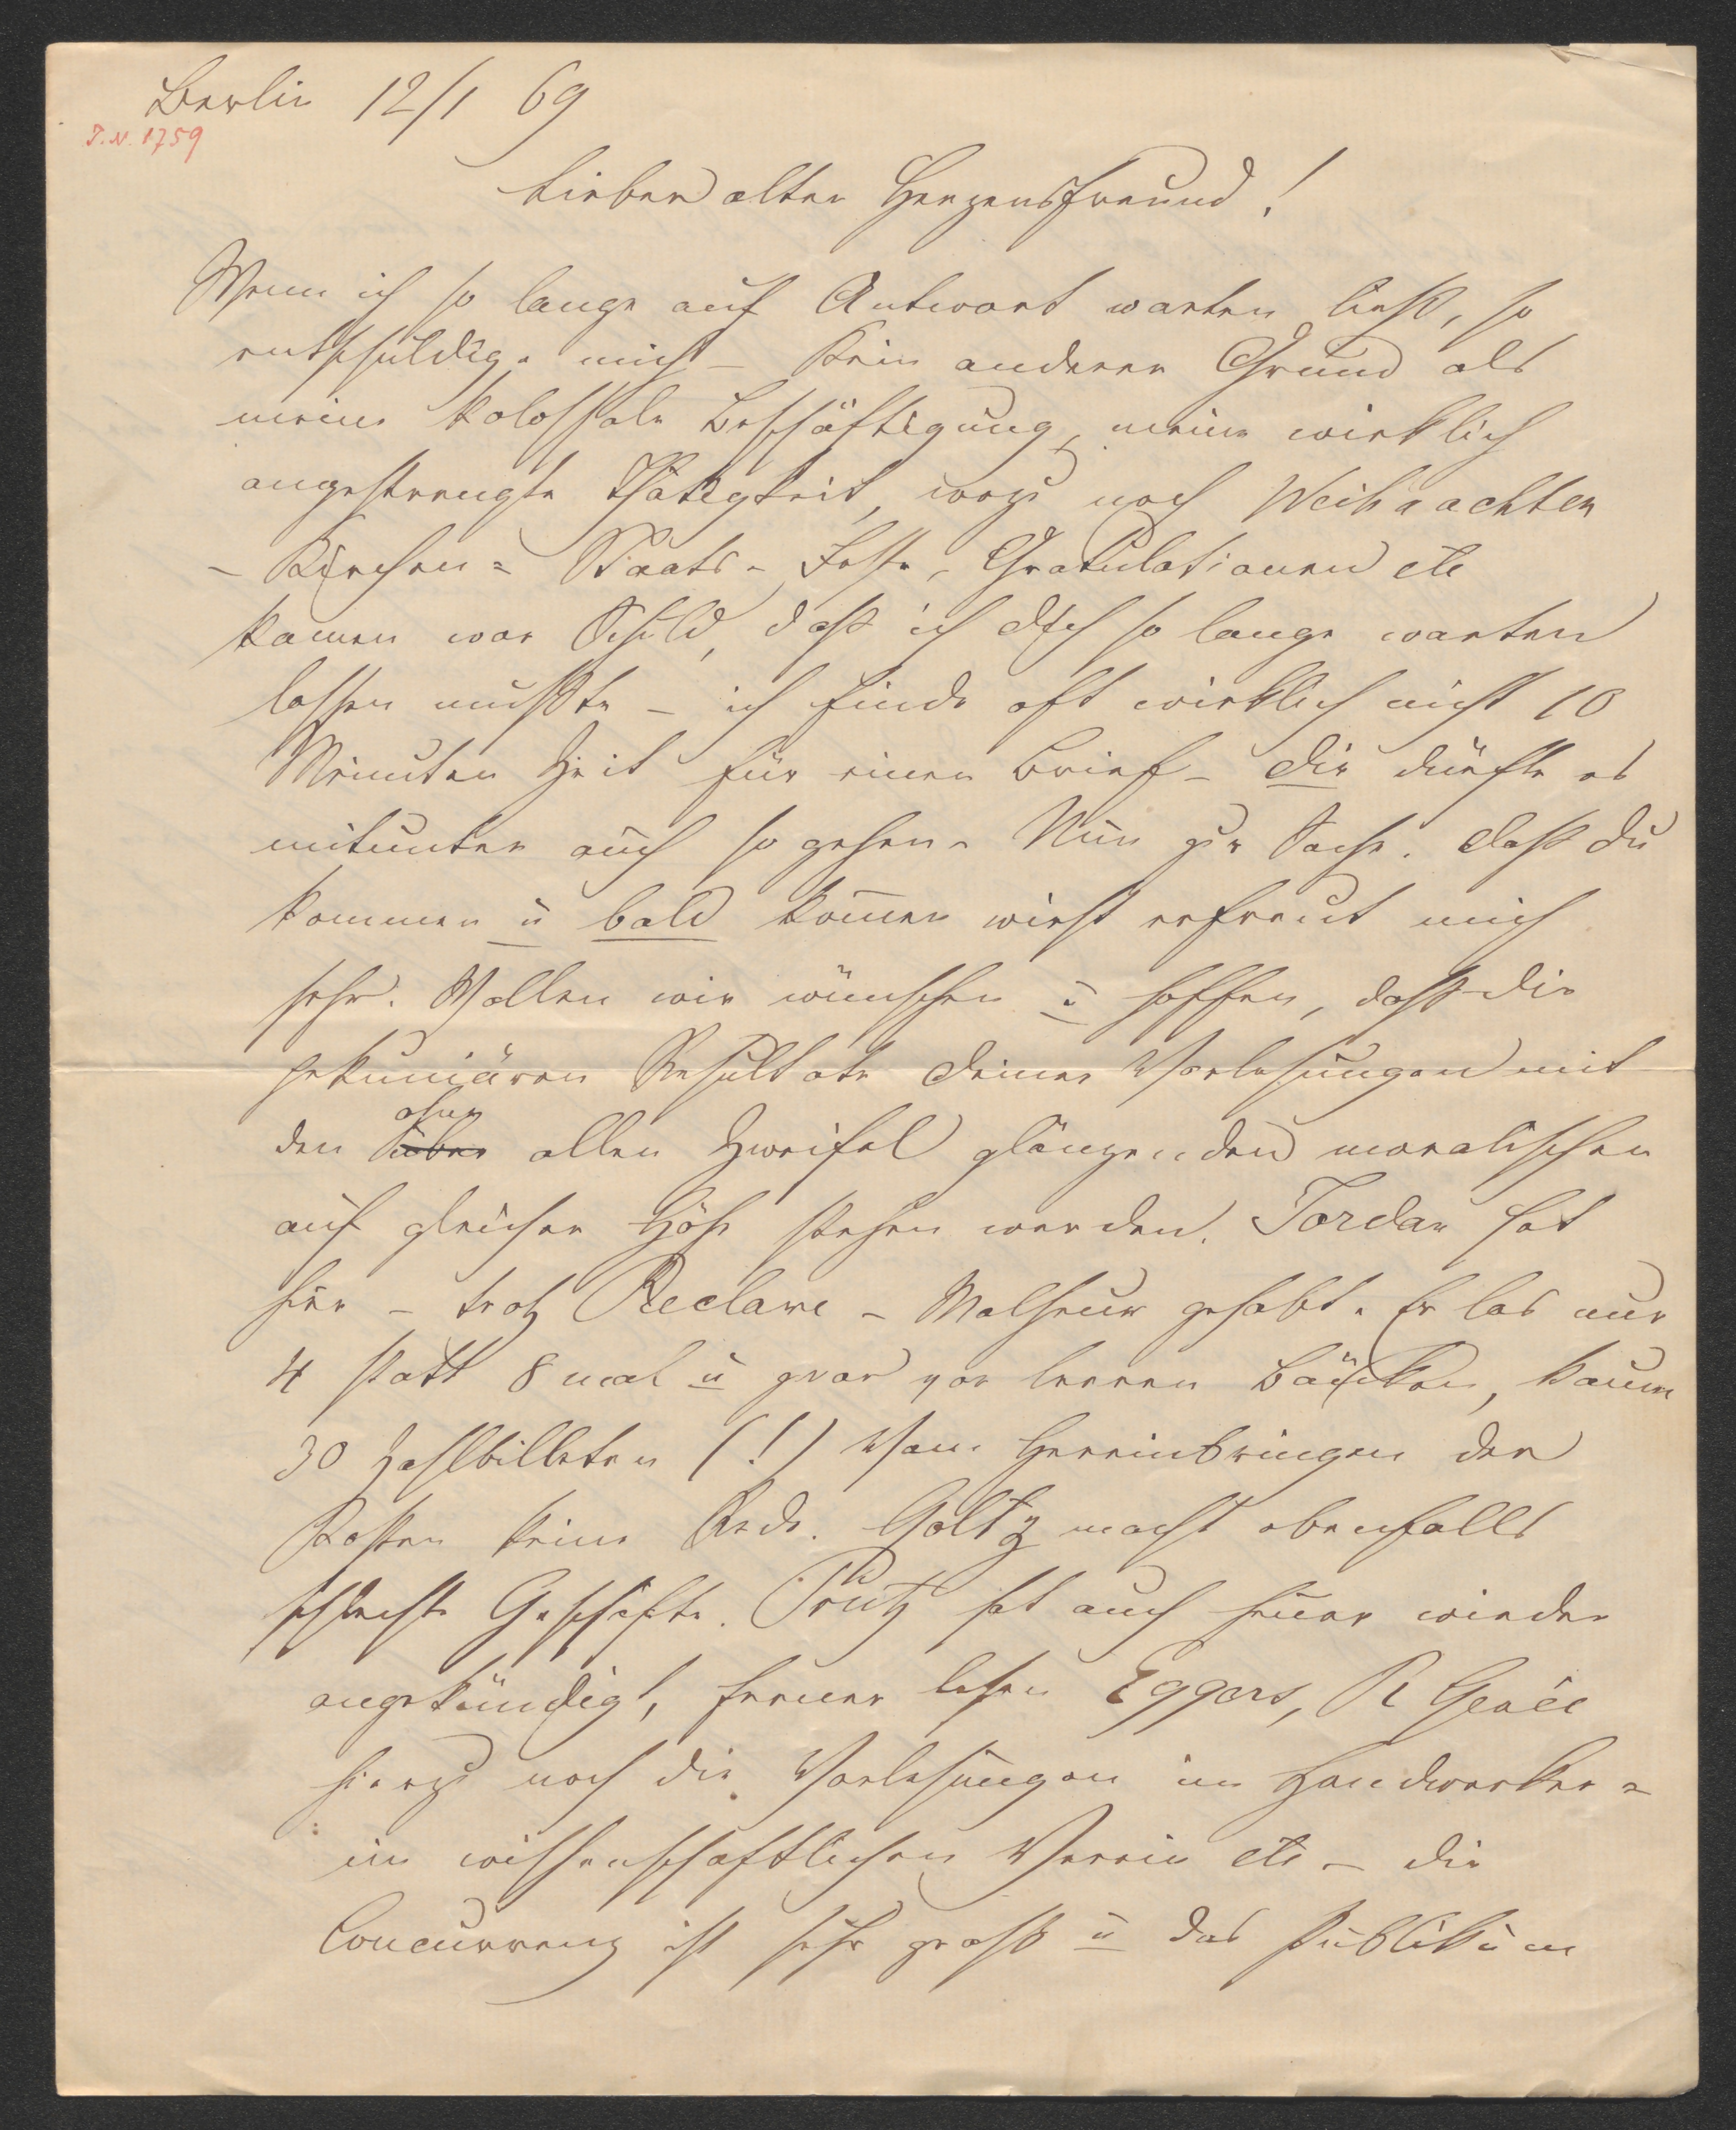 Berlin 12/1 69
T.N. 1759
Lieber alter Herzensfreund!
Wenn ich so lange auf Antwort warten ließ, so
entschuldige mich – kein anderer Grund als
meine kolossale Beschäftigung, meine wirklich
angestrengte Thätigkeit, wozu noch Weihnachten
– Kirchen- Staats- Feste, Gratulationen etc
kamen war Schuld, daß ich dich so lange warten
lassen mußte – ich finde oft wirklich nicht 10
Minuten Zeit für einen Brief – Dir dürfte es
mitunter auch so gehen. Nun zur Sache. Daß du
kommen u bald kom̅en wirst erfreut mich
sehr. Wollen wir wünschen u hoffen, daß die
pekuniären Resultate deiner Vorlesungen mit
den über ohne allen Zweifel glänzenden moralischen
auf gleicher Höhe stehen werden. Jordan hat
hier – trotz Reclame – Malheur gehabt. Er las nur
4 statt 8 mal u zwar vor leeren Bänken, kaum
30 Zahlbilleten (!) Vom Hereinbringen der
Kosten keine Rede. Goltz macht ebenfalls
schlechte Geschäfte. Prutz hat auch heuer wieder
angekündigt, ferner lesen Eggers, R Genée
hierzu noch die Vorlesungen im Handwerker-
im wissenschaftlichen Verein etc – die
Concurrenz ist sehr groß u das Publikum